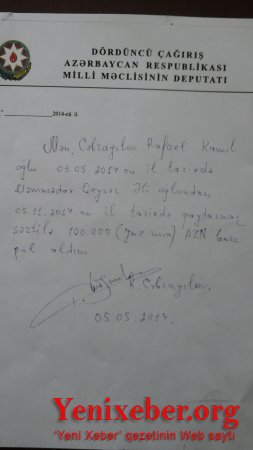 DÖRDÜNCÜ ÇAĞIRIŞ
AZƏRBAYCAN RESPUBLİKASI
MİLLİ MƏCLİSİNİN DEPUTATI
"___" ____________ 2014-cü il
Mən, Cəbrayılov Rafael Kamil
oğlu 05.05.2014-cü il tarixdə
Məmmədov Qeysər Əli oğlundan
05.11.2014-cü il tarixdə qaytarmaq
şərtilə 100.000 (yüz min) AZN borc
pul aldım
R. Cəbrayılov.
05.05.2014.
Yenixeber.org
"Yeni Xeber" qezetinin Web sayti